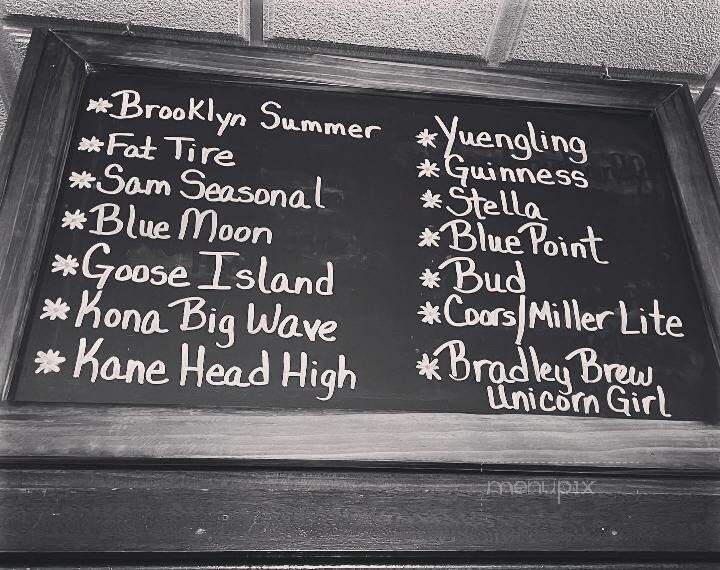 *Brooklyn Summer
*Fat Tire
*Sam Seasonal
*Blue Moon
*Goose Island
*Kona Big Wave
*Kane Head High
*Yuengling
*Guinness
*Stella
*Blue Point
*Bud
*Coors/Miller Lite
*Bradley Brew
Unicorn Girl
menupix